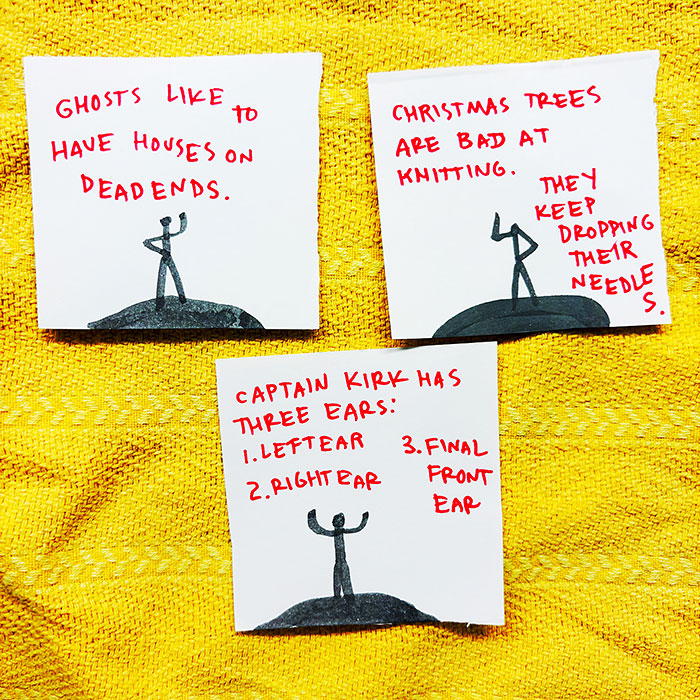 GHOSTS LIKE TO
HAVE HOUSES ON
DEAD ENDS.
CHRISTMAS TREES
ARE BAD AT
KNITTING.
THEY
KEEP
DROPPING
THEIR
NEEDLE
S.
CAPTAIN KIRK HAS
THREE EARS:
1. LEFT EAR
2. RIGHT EAR
3. FINAL
FRONT
EAR